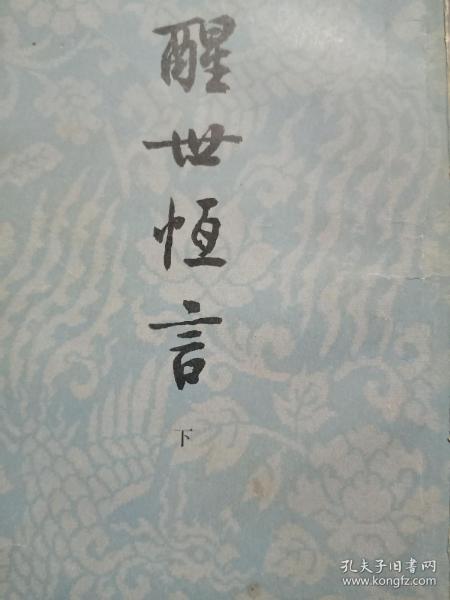 醒世恆言
下
孔夫子旧书网
www.kongfz.com